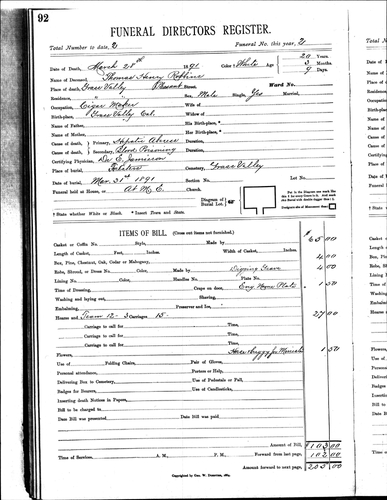 92
FUNERAL DIRECTORS REGISTER.
Total Number to date, 21 Funeral No. this year, 21
Date of Death, March 28th 1891 Color † White Age 20 Years 3 Months 9 Days.
Name of Deceased, Thomas Henry Robbins
Place of Death, Grass Valley Pleasant Street. Ward No.
Residence, " Sex, Male Single, Yes Married,
Occupation, Cigar Maker Wife of
Birth-place, Grass Valley Cal. Widow of
Name of Father, His Birth-place, *
Name of Mother, Her Birth-place, *
Cause of death, Primary, Hepatic Abcess Duration,
Cause of death, Secondary, Blood Poisoning Duration,
Certifying Physician, Dr E. Jamieson
Place of burial, Cemetery, Grass Valley
Date of burial, Mar. 31st 1891 Section No. Lot No.
Funeral held at At M. E. Church.
Diagram of Burial Lot.
† State whether White or Black. * Insert Town and State.
ITEMS OF BILL. (Cross out items not furnished.)
Casket or Coffin No. Style, Made by $ 65 00
Length of Casket, Feet, Inches. Width of Casket, Inches.
Box, Pine, Chestnut, Oak, Cedar or Mahogany, 4 00
Robe, Shroud, or Dress No. Color, Made by Digging Grave 4 00
Lining No. Color, Handles No. Plate No.
Time of Dressing, Crape on door, Eng Name Plate 1 50
Washing and laying out, Shaving,
Embalming, Preserver and Ice,
Hearse and Team 12- 3 Carriages 15- 27 00
Carriage to call for Time,
Carriage to call for Time,
Carriage to call for Time,
Carriage to call for Time,
Flowers, Horse & Buggy for Minister 1 50
Use of Folding Chairs, Pair of Gloves,
Personal attendance, Porters or Help,
Delivering Box to Cemetery, Use of Pedestals or Pall,
Badges for Bearers, Use of Candlesticks,
Inserting death Notices in Papers,
Bill to be charged to
Date Bill was presented Date Bill was paid
Amount of Bill, $ 103 00
Time of Services, A. M., P. M., Forward from last page, 102 00
Amount forward to next page, 205 00